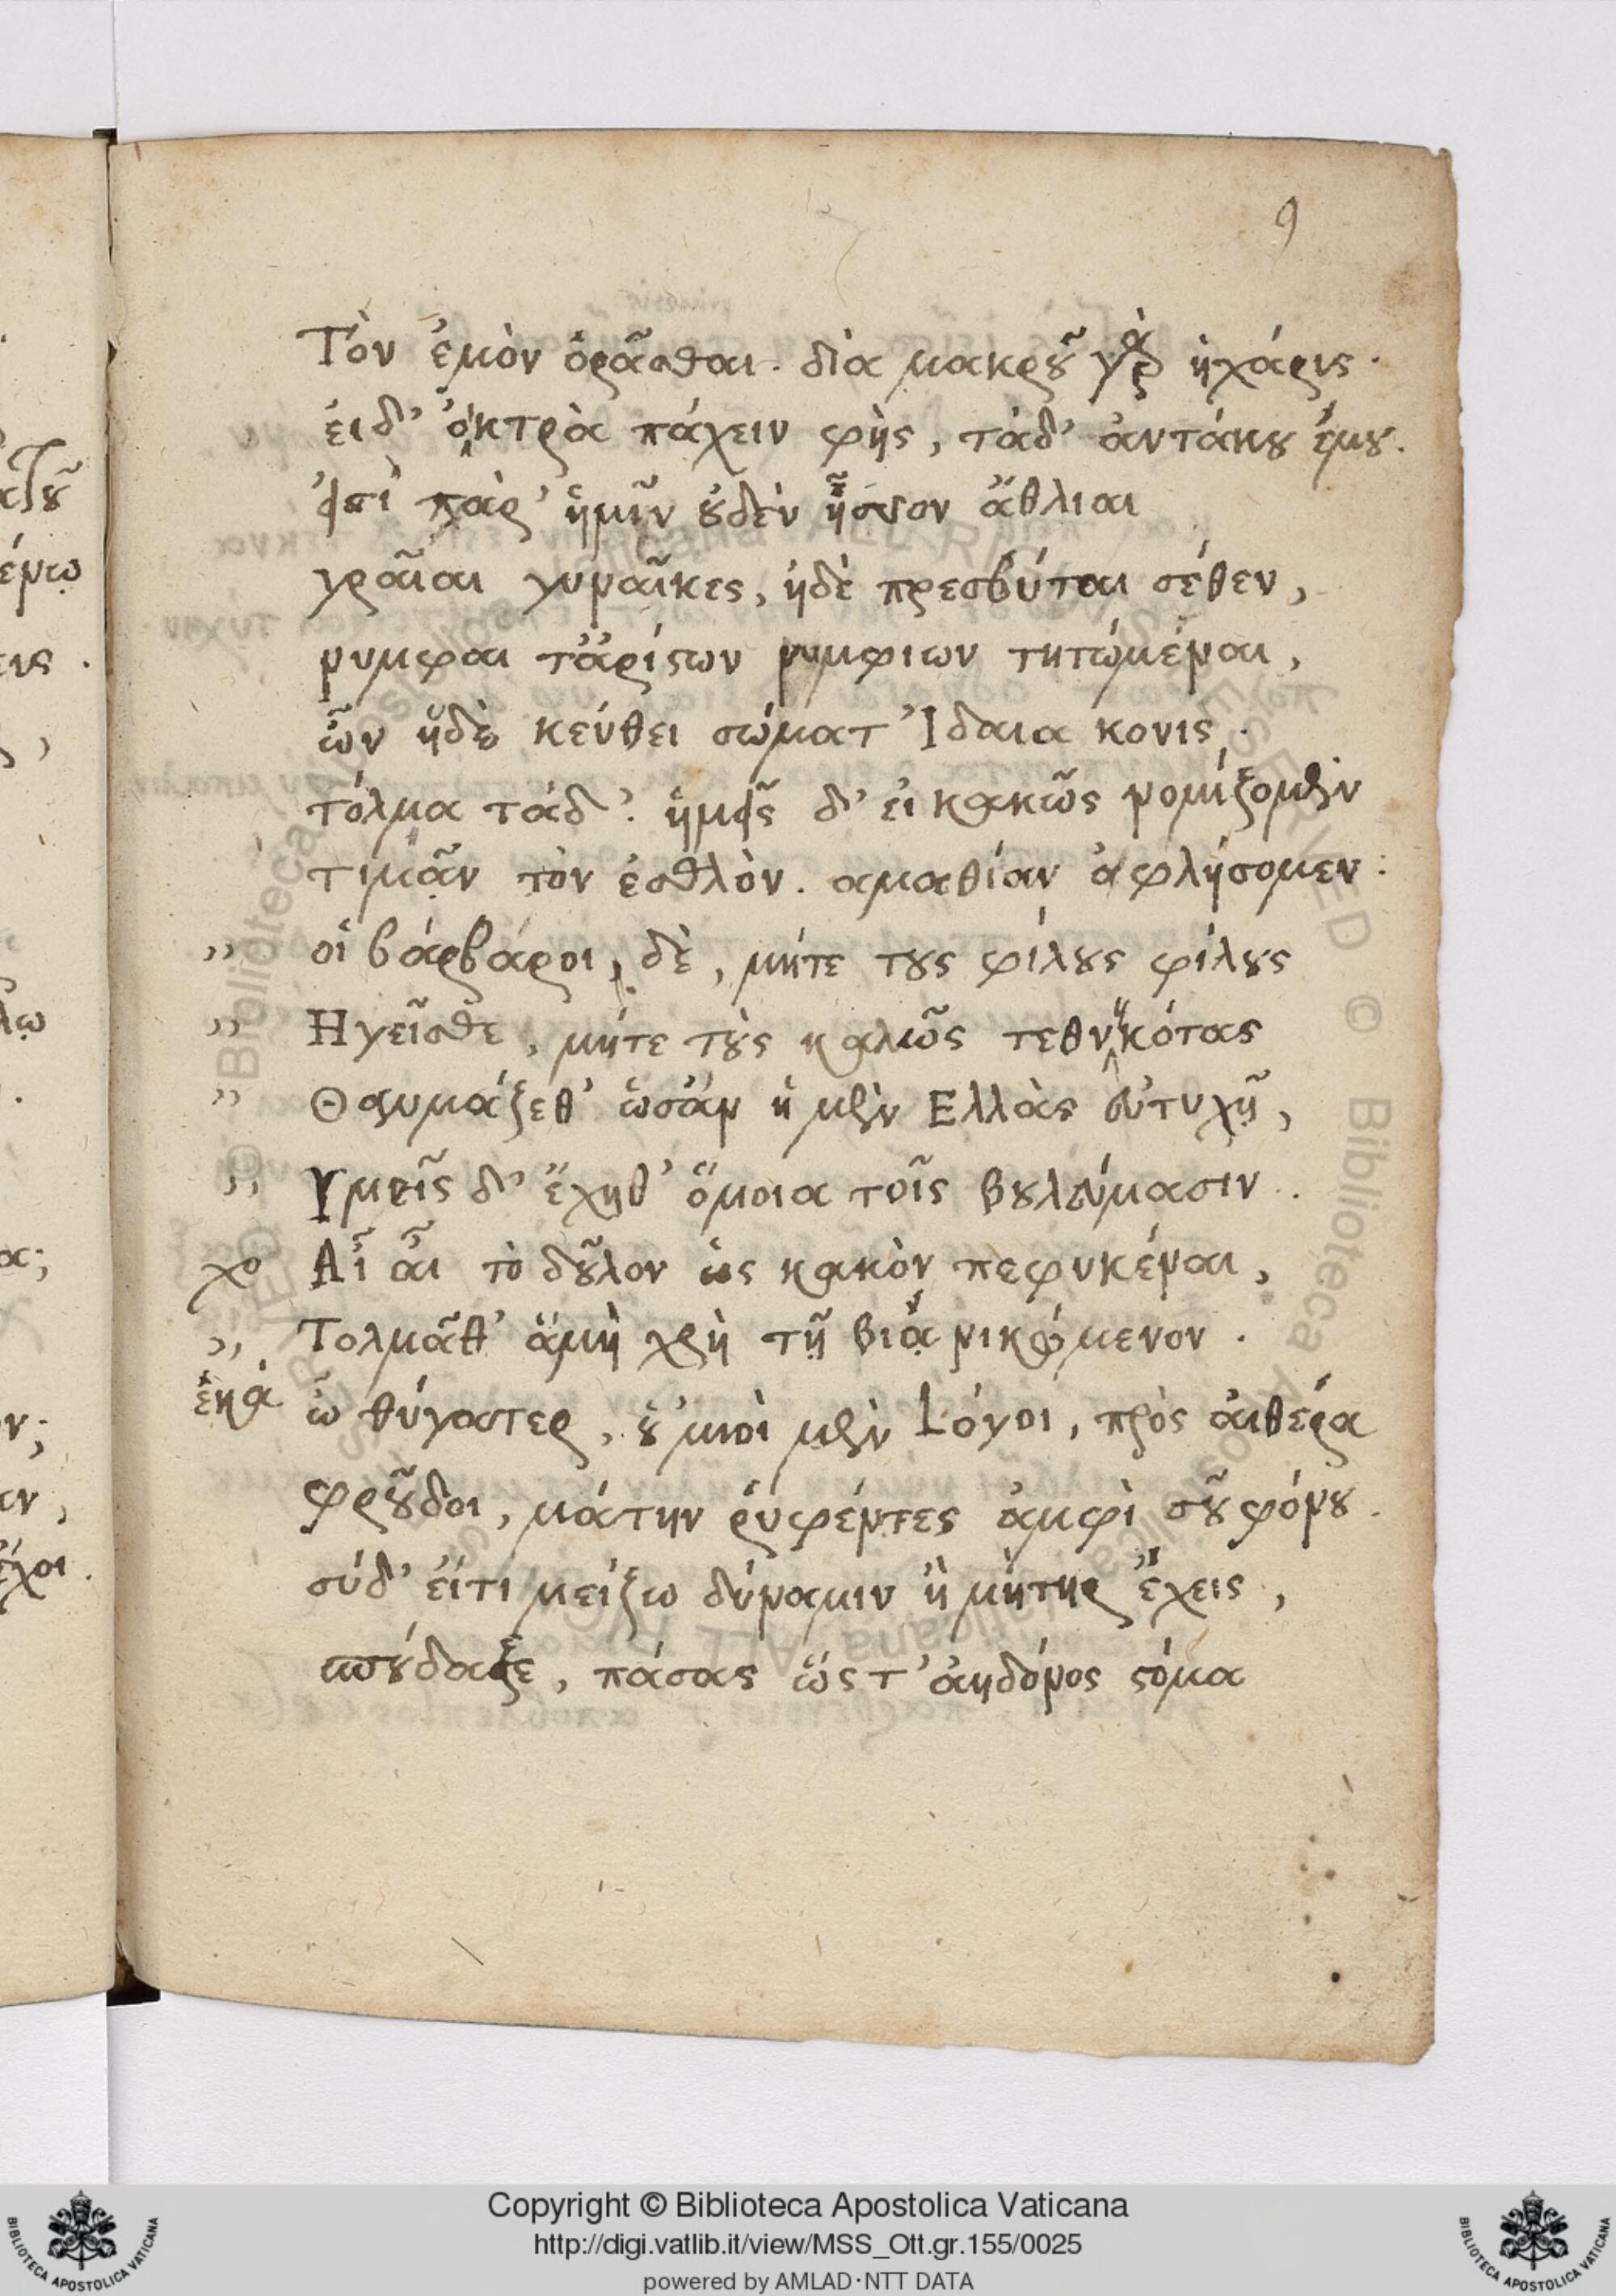 9
Τὸν ἐμὸν ὁρᾶσθαι. διὰ μακροῦ γὰρ ἡχάρις.
ἐιδ' ὀικτρὰ πάχειν φὴς, τάδ' ἀντάκου ἐμου.
ἐισὶ παρ' ἡμῖν ὀυδὲν ἧσσον ἄθλιαι
γραῖαι γυναῖκες, ἠδὲ πρεσβύται σέθεν,
νυμφαι τἀρίστων νυμφιων τητώμέναι,
ὧν ἥδε κεύθει σώματ' Ιδαια κονις.
τόλμα τάδ'. ἡμεῖς δ' ἐι κακῶς νομίζομεν
τιμᾶν τὸν ἐσθλὸν. αμαθίαν ὀφλήσομεν.
,, οἱ βάρβάροι, δὲ, μήτε τους φίλους φίλους
,, Ηγεῖσθε, μήτε τοὺς καλῶς τεθνηκότας
,, Θαυμάζεθ' ὡσἂν ἡ μὲν Ελλὰς ἐυτυχῇ,
,, Ὑμεῖς δ' ἔχηθ' ὅμοια τοῖς βουλεύμασιν.
χο Αἶ ἆι τὸ δοῦλον ὡς κακὸν πεφυκέναι,
,, Τολμᾶθ' ἅμὴ χρὴ τῇ βιᾴ νικώμενον.
ἑκά ὦ θύγαστερ, ὀυ'μιοὶ μὲν Λόγοι, πρὸς ἀιθέρα
φροῦδοι, μάτην ῥυφέντες ἀμφὶ σοῦ φόνου.
σύδ' ἐίτι μείζω δύναμιν ἢ μήτηρ ἔχεις,
σπούδαζε, πάσας ὥς τ' ἀηδόνος στόμα
Copyright © Biblioteca Apostolica Vaticana
http://digi.vatlib.it/view/MSS_Ott.gr.155/0025
powered by AMLAD·NTT DATA